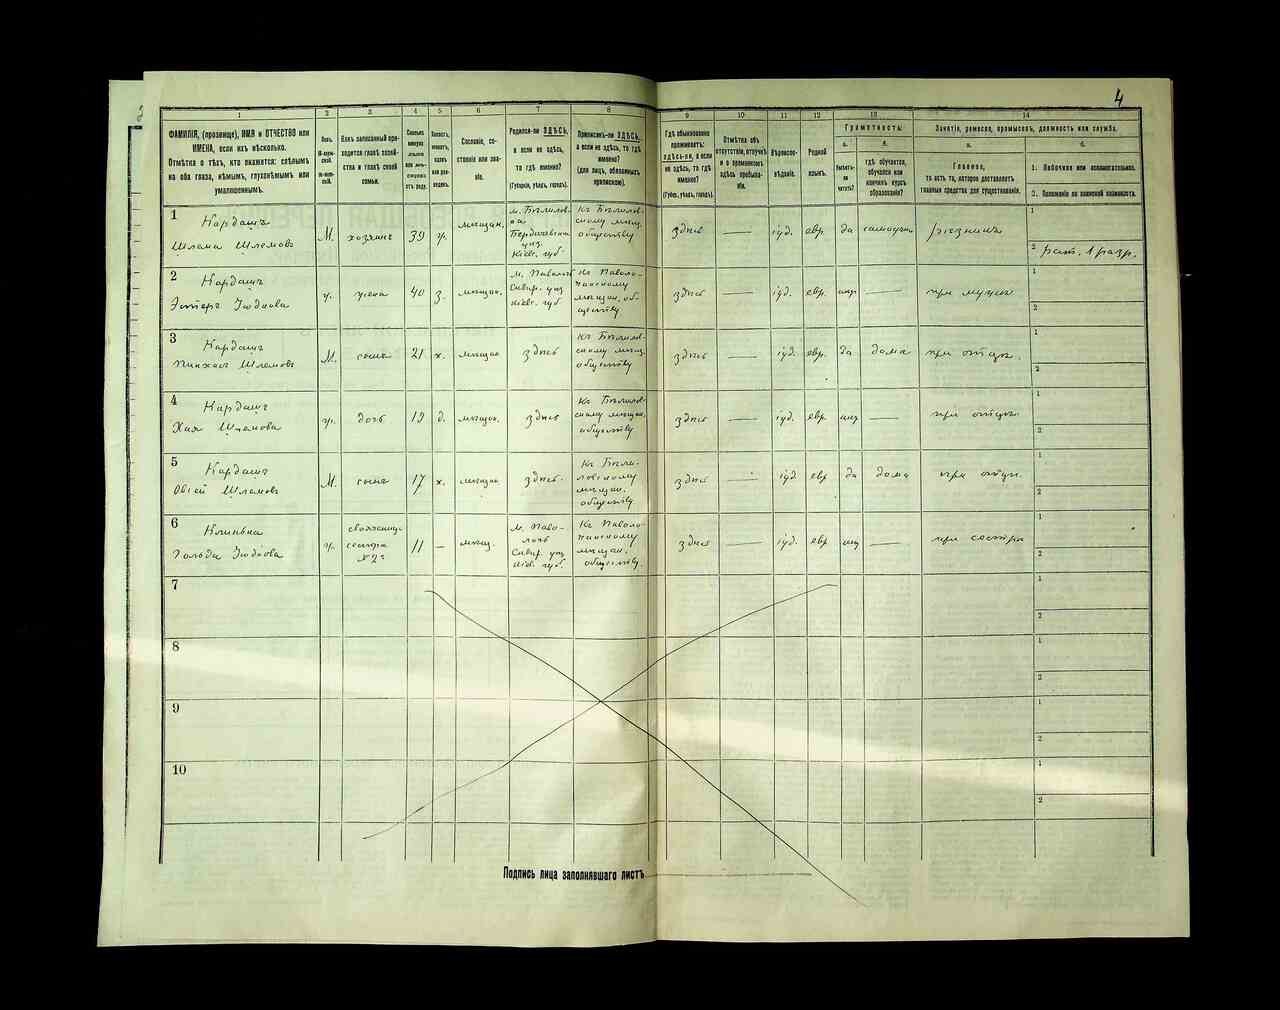 4
1 2 3 4 5 6 7 8 9 10 11 12 13 14
ФАМИЛІЯ, (прозвище), ИМЯ и ОТЧЕСТВО или
ИМЕНА, если ихъ нѣсколько.
Отмѣтка о тѣхъ, кто окажется: слѣпымъ
на оба глаза, нѣмымъ, глухонѣмымъ или
умалишеннымъ.
Полъ.
Какъ записанный при-
ходится главѣ хозяй-
ства и главѣ своей
семьи.
Сословіе, со-
стояніе или зва-
ніе.
Родился-ли ЗДѢСЬ,
а если не здѣсь,
то гдѣ именно?
(Губернія, уѣздъ, городъ).
Приписанъ-ли ЗДѢСЬ,
а если не здѣсь, то гдѣ
именно?
(для лицъ, обязанныхъ
припискою).
Гдѣ обыкновенно
проживаетъ:
здѣсь-ли, а если
не здѣсь, то гдѣ
именно?
(Губер., уѣздъ, городъ).
Отмѣтка объ
отсутствіи, отлучкѣ
и о временномъ
здѣсь пребыва-
ніи.
Вѣроиспо-
вѣданіе.
Родной
языкъ.
Грамотность.
а. б.
Умѣетъ-
ли
читать?
гдѣ обучается,
обучался или
кончилъ курсъ
образованія?
Занятіе, ремесло, промыселъ, должность или служба.
а. б.
Главное,
то есть то, которое доставляетъ
главныя средства для существованія.
1. Побочное или вспомогательное.
2. Положеніе по воинской повинности.
1 Кардашъ
Шлема Шлемовъ
М. хозяинъ 39 ж. мѣщан.
м. Бѣлилов-
ка
Бердичевскаго
уѣз.
Кіев. губ.
Къ Бѣлилов-
скому мѣщ.
обществу
здѣсь — іуд. евр. да самоучк. рѣзникъ
1
2 рат. 1 разр.
2 Кардашъ
Эстеръ Іюдкова
ж. жена 40 з. мѣщан.
м. Паволочь
Сквир. уѣз
Кіев. губ
Къ Паволо-
чанскому
мѣщан. об-
ществу
здѣсь — іуд. евр. нѣтъ — при мужѣ
1
2
3 Кардашъ
Пинхасъ Шлемовъ
М. сынъ 21 х. мѣщан здѣсь
Къ Бѣлилов-
скому мѣщ.
обществу
здѣсь — іуд. евр. да дома при отцѣ.
1
2
4 Кардашъ
Хая Шлемова
ж. дочь 19 д. мѣщан. здѣсь
Къ Бѣлилов-
скому мѣщан.
обществу
здѣсь — іуд. евр нѣтъ — при отцѣ
1
2
5 Кардашъ
Овсей Шлемовъ
М. сынъ 17 х. мѣщан здѣсь.
Къ Бѣли-
ловскому
мѣщан.
обществу
здѣсь — іуд евр да дома при отцѣ.
1
2
6
Гольда Іюдкова
ж.
свояченица
сестра
№2й
11 — мѣщ.
м. Паво-
лочь
Сквир. уѣз
Кіев. губ.
Къ Паволо-
чанскому
мѣщан.
обществу.
здѣсь — іуд. евр нѣтъ — при сестрѣ
1
2
7
1
2
8
1
2
9
1
2
10
1
2
Подпись лица заполнявшаго листъ